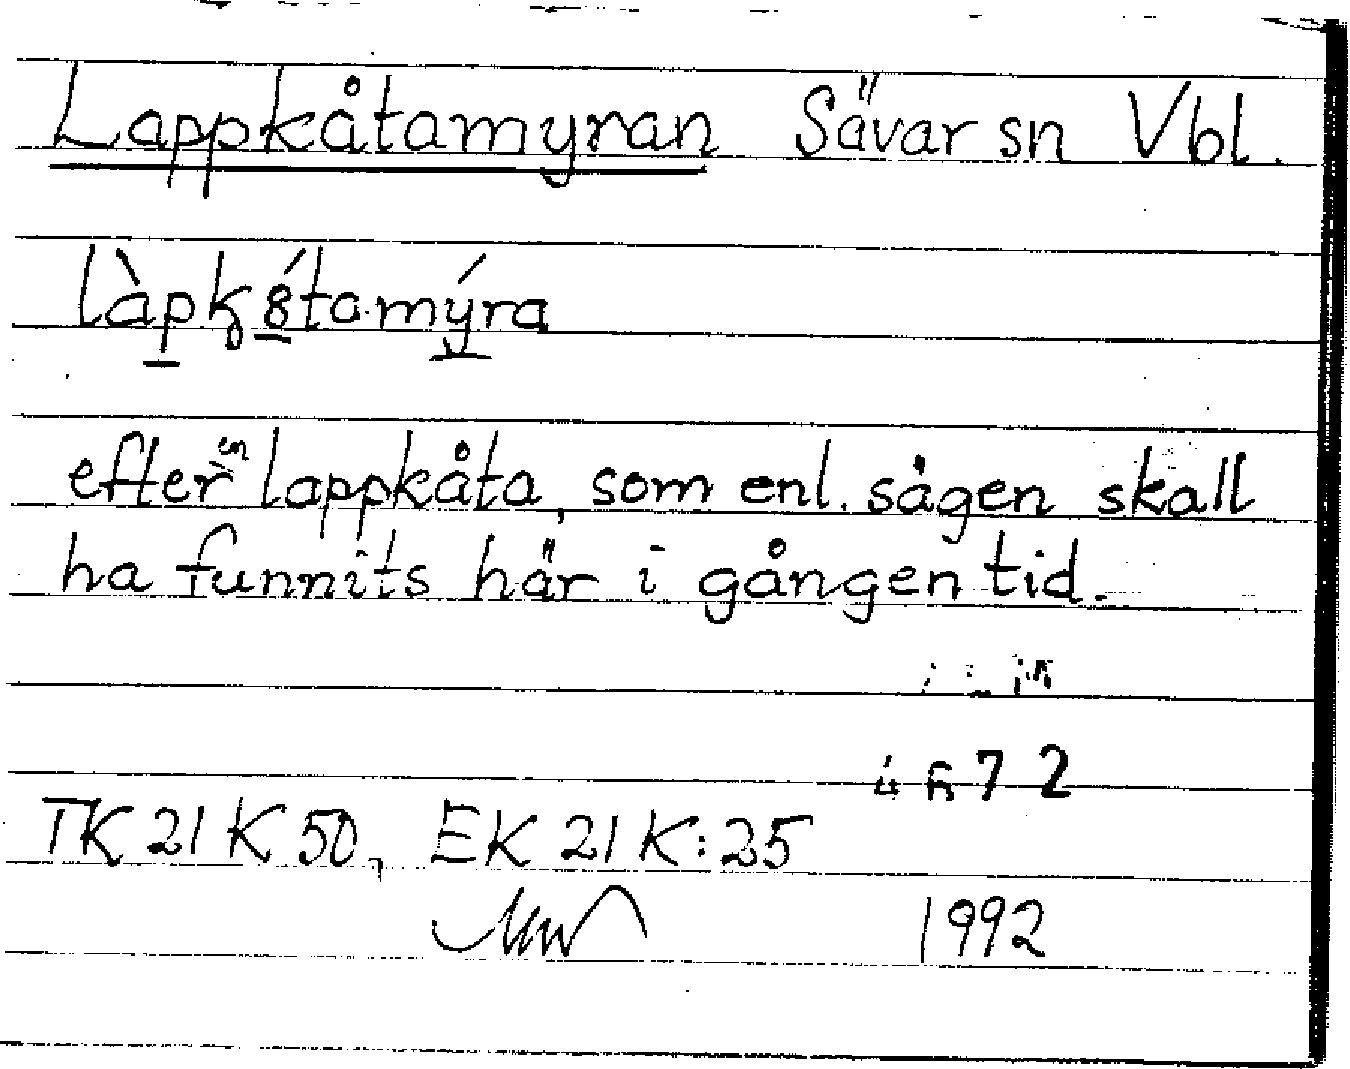 Lappkåtamyran Sävar sn Vbl.
efter en lappkåta, som enl. sägen skall
ha funnits här i gången tid.
72
TK 21 K 50, EK 21 K:25
1992